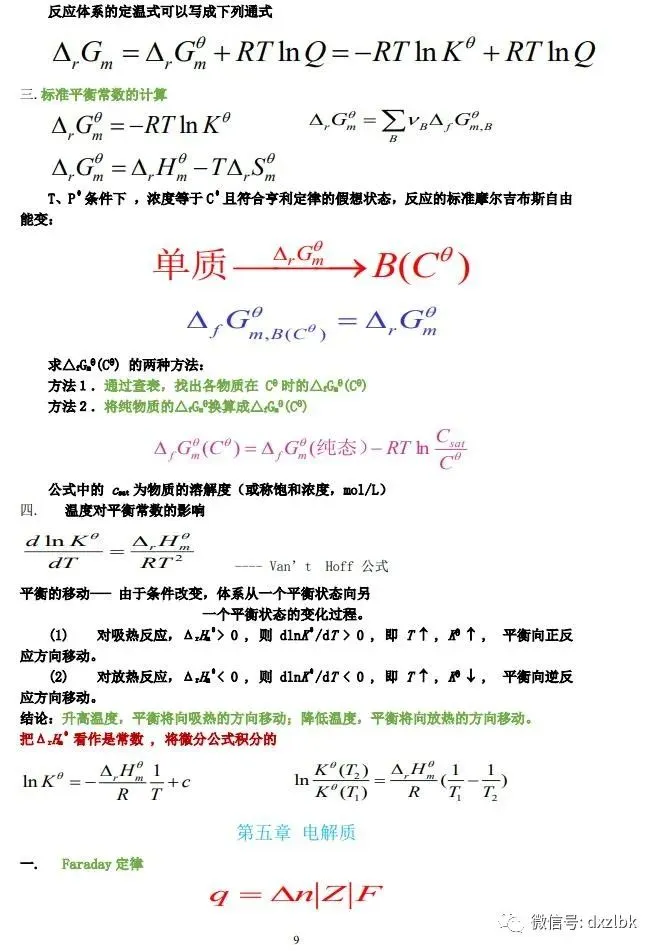 反应体系的定温式可以写成下列通式
Δ_rG_m = Δ_rG_m^θ + RT ln Q = −RT ln K^θ + RT ln Q
三.标准平衡常数的计算
Δ_rG_m^θ = −RT ln K^θ Δ_rG_m^θ = ∑_B ν_BΔ_fG_{m,B}^θ
Δ_rG_m^θ = Δ_rH_m^θ − TΔ_rS_m^θ
T、P^θ条件下 ，浓度等于C^θ且符合亨利定律的假想状态，反应的标准摩尔吉布斯自由
能变：
单质 —Δ_rG_m^θ→ B(C^θ)
Δ_fG_{m,B(C^θ)}^θ = Δ_rG_m^θ
求△_fG_m^θ(C^θ) 的两种方法：
方法1．通过查表，找出各物质在 C^θ时的△_fG_m^θ(C^θ)
方法2．将纯物质的△_fG_m^θ换算成△_fG_m^θ(C^θ)
Δ_fG_m^θ(C^θ) = Δ_fG_m^θ(纯态) − RT ln C_sat/C^θ
公式中的 c_sat为物质的溶解度（或称饱和浓度，mol/L）
四. 温度对平衡常数的影响
d ln K^θ/dT = Δ_rH_m^θ/RT^2 ---- Van't Hoff 公式
平衡的移动—— 由于条件改变，体系从一个平衡状态向另
一个平衡状态的变化过程。
(1) 对吸热反应，Δ_rH_m^θ> 0 , 则 dlnK^θ/dT > 0 , 即 T↑ , K^θ↑ , 平衡向正反
应方向移动。
(2) 对放热反应，Δ_rH_m^θ< 0 , 则 dlnK^θ/dT < 0 , 即 T↑ , K^θ↓ , 平衡向逆反
应方向移动。
结论：升高温度，平衡将向吸热的方向移动；降低温度，平衡将向放热的方向移动。
把Δ_rH_m^θ看作是常数 , 将微分公式积分的
ln K^θ = −Δ_rH_m^θ/R 1/T + c ln K^θ(T_2)/K^θ(T_1) = Δ_rH_m^θ/R (1/T_1 − 1/T_2)
第五章 电解质
一. Faraday定律
q = Δn|Z|F
微信号: dxzlbk
9